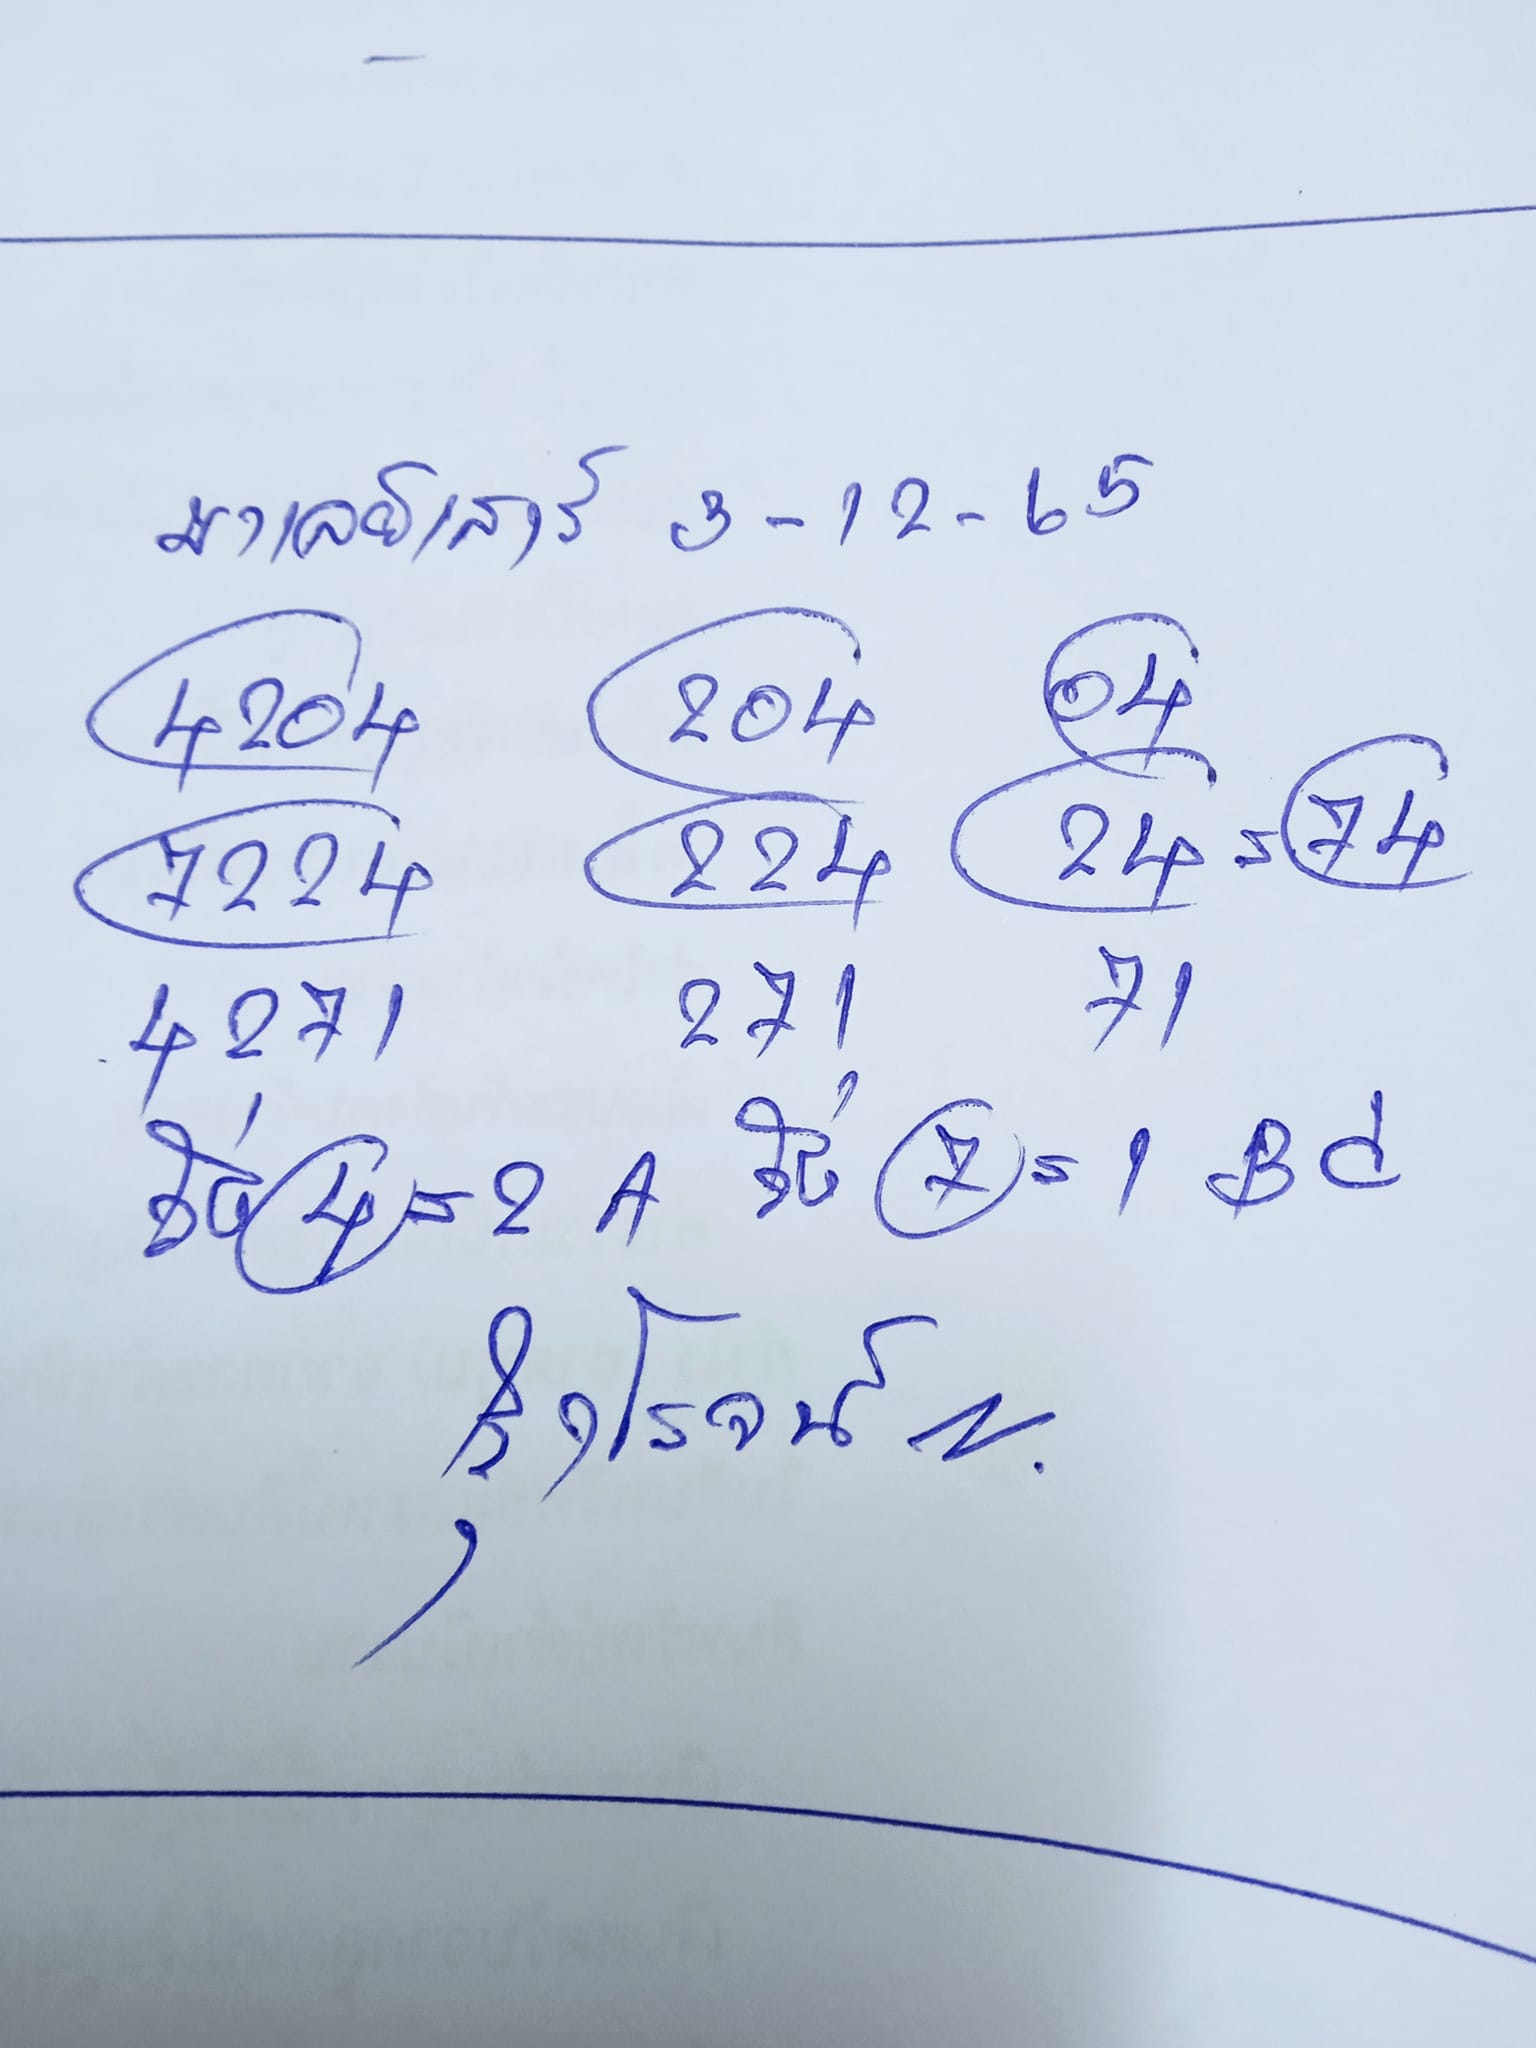 มาเลย์เสาร์ 3-12-65
4204 204 04
7224 224 24=74
4271 271 71
4=2 A 7=1 B C
โรจน์ N.